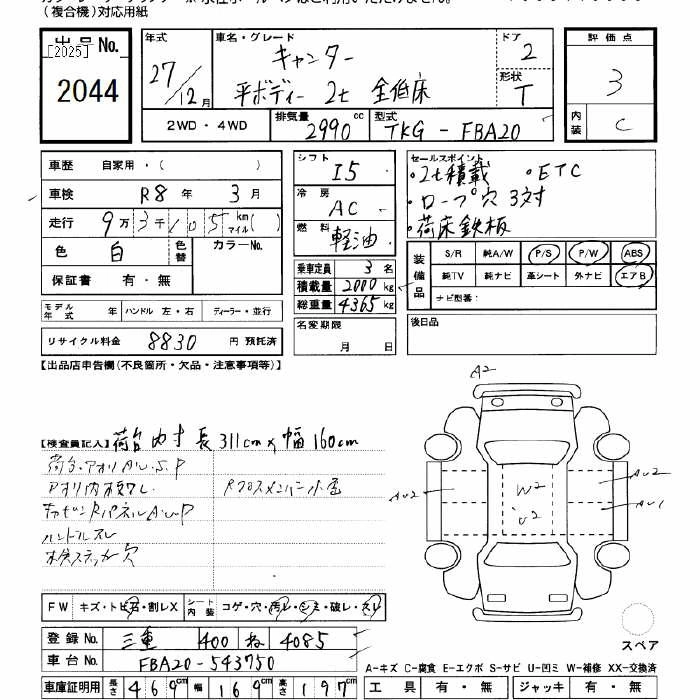 (複合機)対応用紙
出品No.
[2025]
2044
年式
27/12月
車名・グレード
キャンター
平ボディー 2t 全低床
ドア
2
形状
T
評価点
3
内装
C
2WD・4WD
排気量 2990 cc
型式 TKG-FBA20
車歴 自家用・( )
車検 R8年 3月
走行 9万3千105 km マイル( )
色 白 色替 カラーNo.
保証書 有・無
モデル年式 年 ハンドル 左・右 ディーラー・並行
リサイクル料金 8830 円 預託済
シフト I5
冷房 AC
燃料 軽油
乗車定員 3名
積載量 2000kg
総重量 4365kg
名変期限
月 日
セールスポイント
・2t積載 ・ETC
・ロープ穴 3対
・荷床鉄板
装備品
S/R 純A/W P/S P/W ABS
純TV 純ナビ 革シート 外ナビ エアB
ナビ型番:
後日品
【出品店申告欄(不良箇所・欠品・注意事項等)】
【検査員記入】荷台内寸 長311cm x 幅160cm
荷台・アオリAU.S.P
アオリ内板ワレ
Rクロスメンバー小
キャビンRパネルAUP
ハンドルスレ
検ステッカー穴
A2
AU2
W2
U2
AU2
AU1
FW キズ・トビ石・割レX
シート内装 コゲ・穴・汚レ・シミ・破レ・スレ
登録No. 三重 400 ね 4085
車台No. FBA20-543750
車庫証明用 長さ 469cm 幅 169cm 高さ 197cm
スペア
A-キズ C-腐食 E-エクボ S-サビ U-凹ミ W-補修 XX-交換済
工具 有・無 ジャッキ 有・無